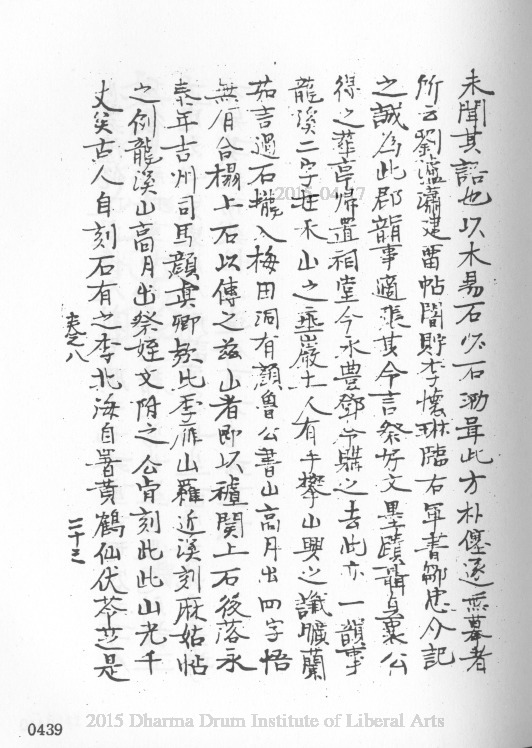 未聞其詔也以木易石必石泐耳此方朴僿遂無摹者
所云劉瀘瀟建畱帖閣貯李懷琳臨右軍書鄒忠介記
之誠為此郡韻事適張其令言祭好文墨蹟聶貞襄公
得之華亭歸置祠堂今永豐鄧令驥之去此亦一韻事
龍溪二字在禾山之垂巖土人有手攀山與之讖曠蘭
茹吉過石攏入梅田洞有顏魯公書山高月出四字悟
無有合榻上石以傳之茲山者即以穭閴上石後落永
泰年吉州司馬顏眞卿款此季雁山羅近溪刻麻姑帖
之例龍溪山高月出祭姪文附之公肯刻此此山光千
丈矣古人自刻石有之李北海自署黃鶴仙伏苓芝是
表之八
二十三
0439
2015 Dharma Drum Institute of Liberal Arts
2015-04-27